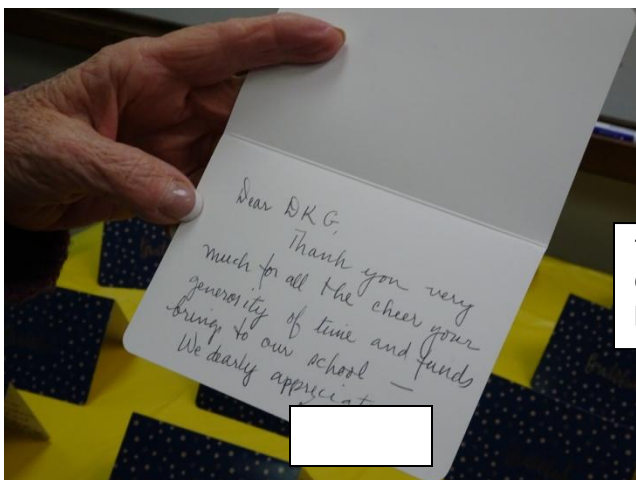 Dear DKG,
Thank you very
much for all the cheer your
generosity of time and funds
brings to our school —
We dearly